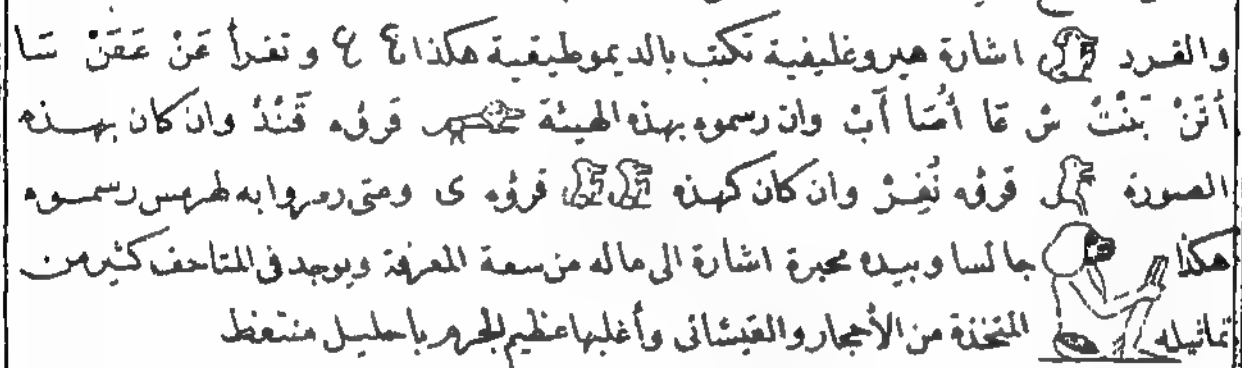 والقرد اشارة هيروغليفية تكتب بالديموطيقية هكذا و تقرأ عَنْ عَقَنْ سَا
أَتَنْ بَنْتُ سْ عَا أُسَا آبْ وان رسموه بهذه الهيئة قرؤه قَنْدُ وان كان بهــذه
الصورة قرؤه نُفِرْ وان كان كهذه قرؤه ى ومتى رمزوا به لهرمس رسمــوه
هكذا جالسا وبيده محبرة اشارة الى ماله من سعة المعرفة ويوجد فى المتاحف كثير من
تماثيله المتخذة من الأحجار والقيشانى وأغلبها عظيم الجرم باحليل منتعظ